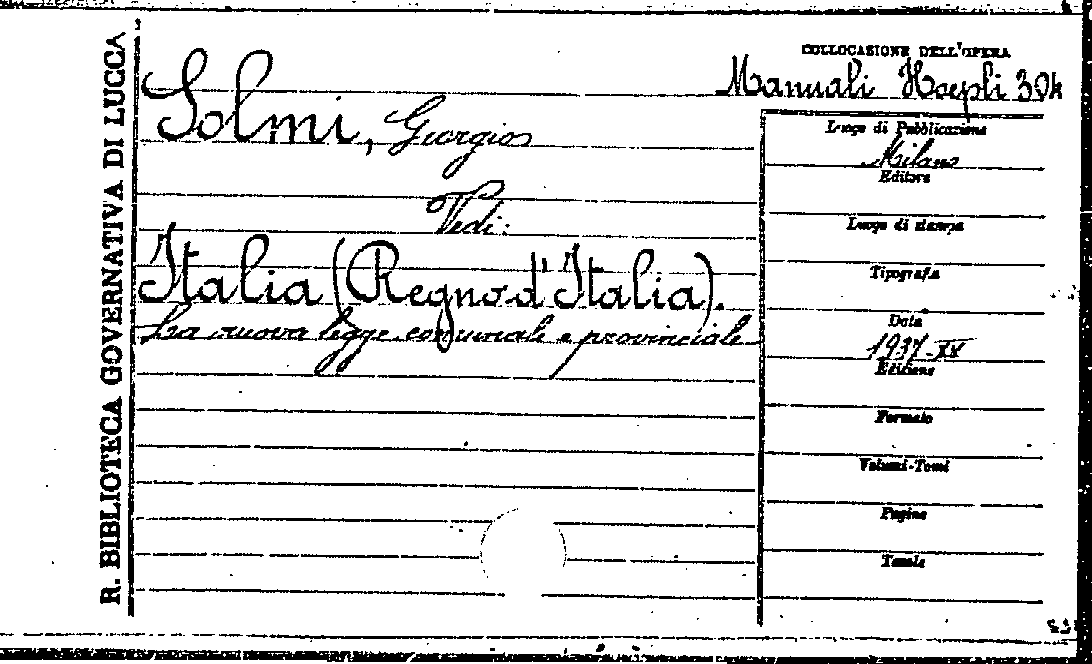 R. BIBLIOTECA GOVERNATIVA DI LUCCA
COLLOCASIONE DELL'OPERA
Manuali Hoepli 304
Solmi, Giorgio
Vedi:
Italia (Regno d'Italia).
La nuova legge comunale e provinciale
Luogo di Pubblicazione
Milano
Editore
Luogo di stampa
Tipografia
Data
1937-XV
Edizione
Formato
Volumi-Tomi
Pagine
Tavole